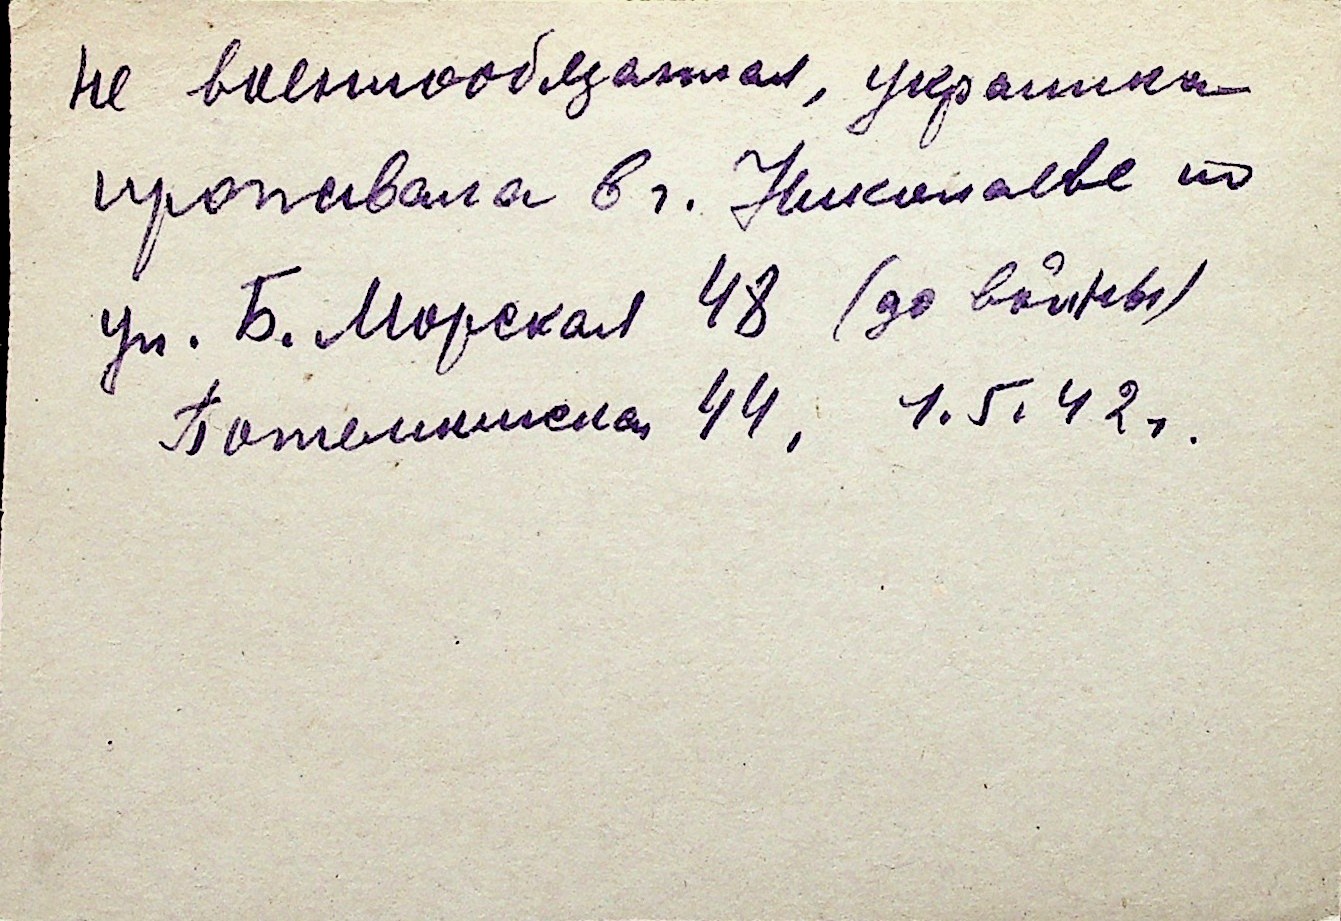 не военнообязанная, украинка
проживала в г. Николаеве по
ул. Б. Морская 48 (до войны)
Потемкинская 44, 1.5.42 г.